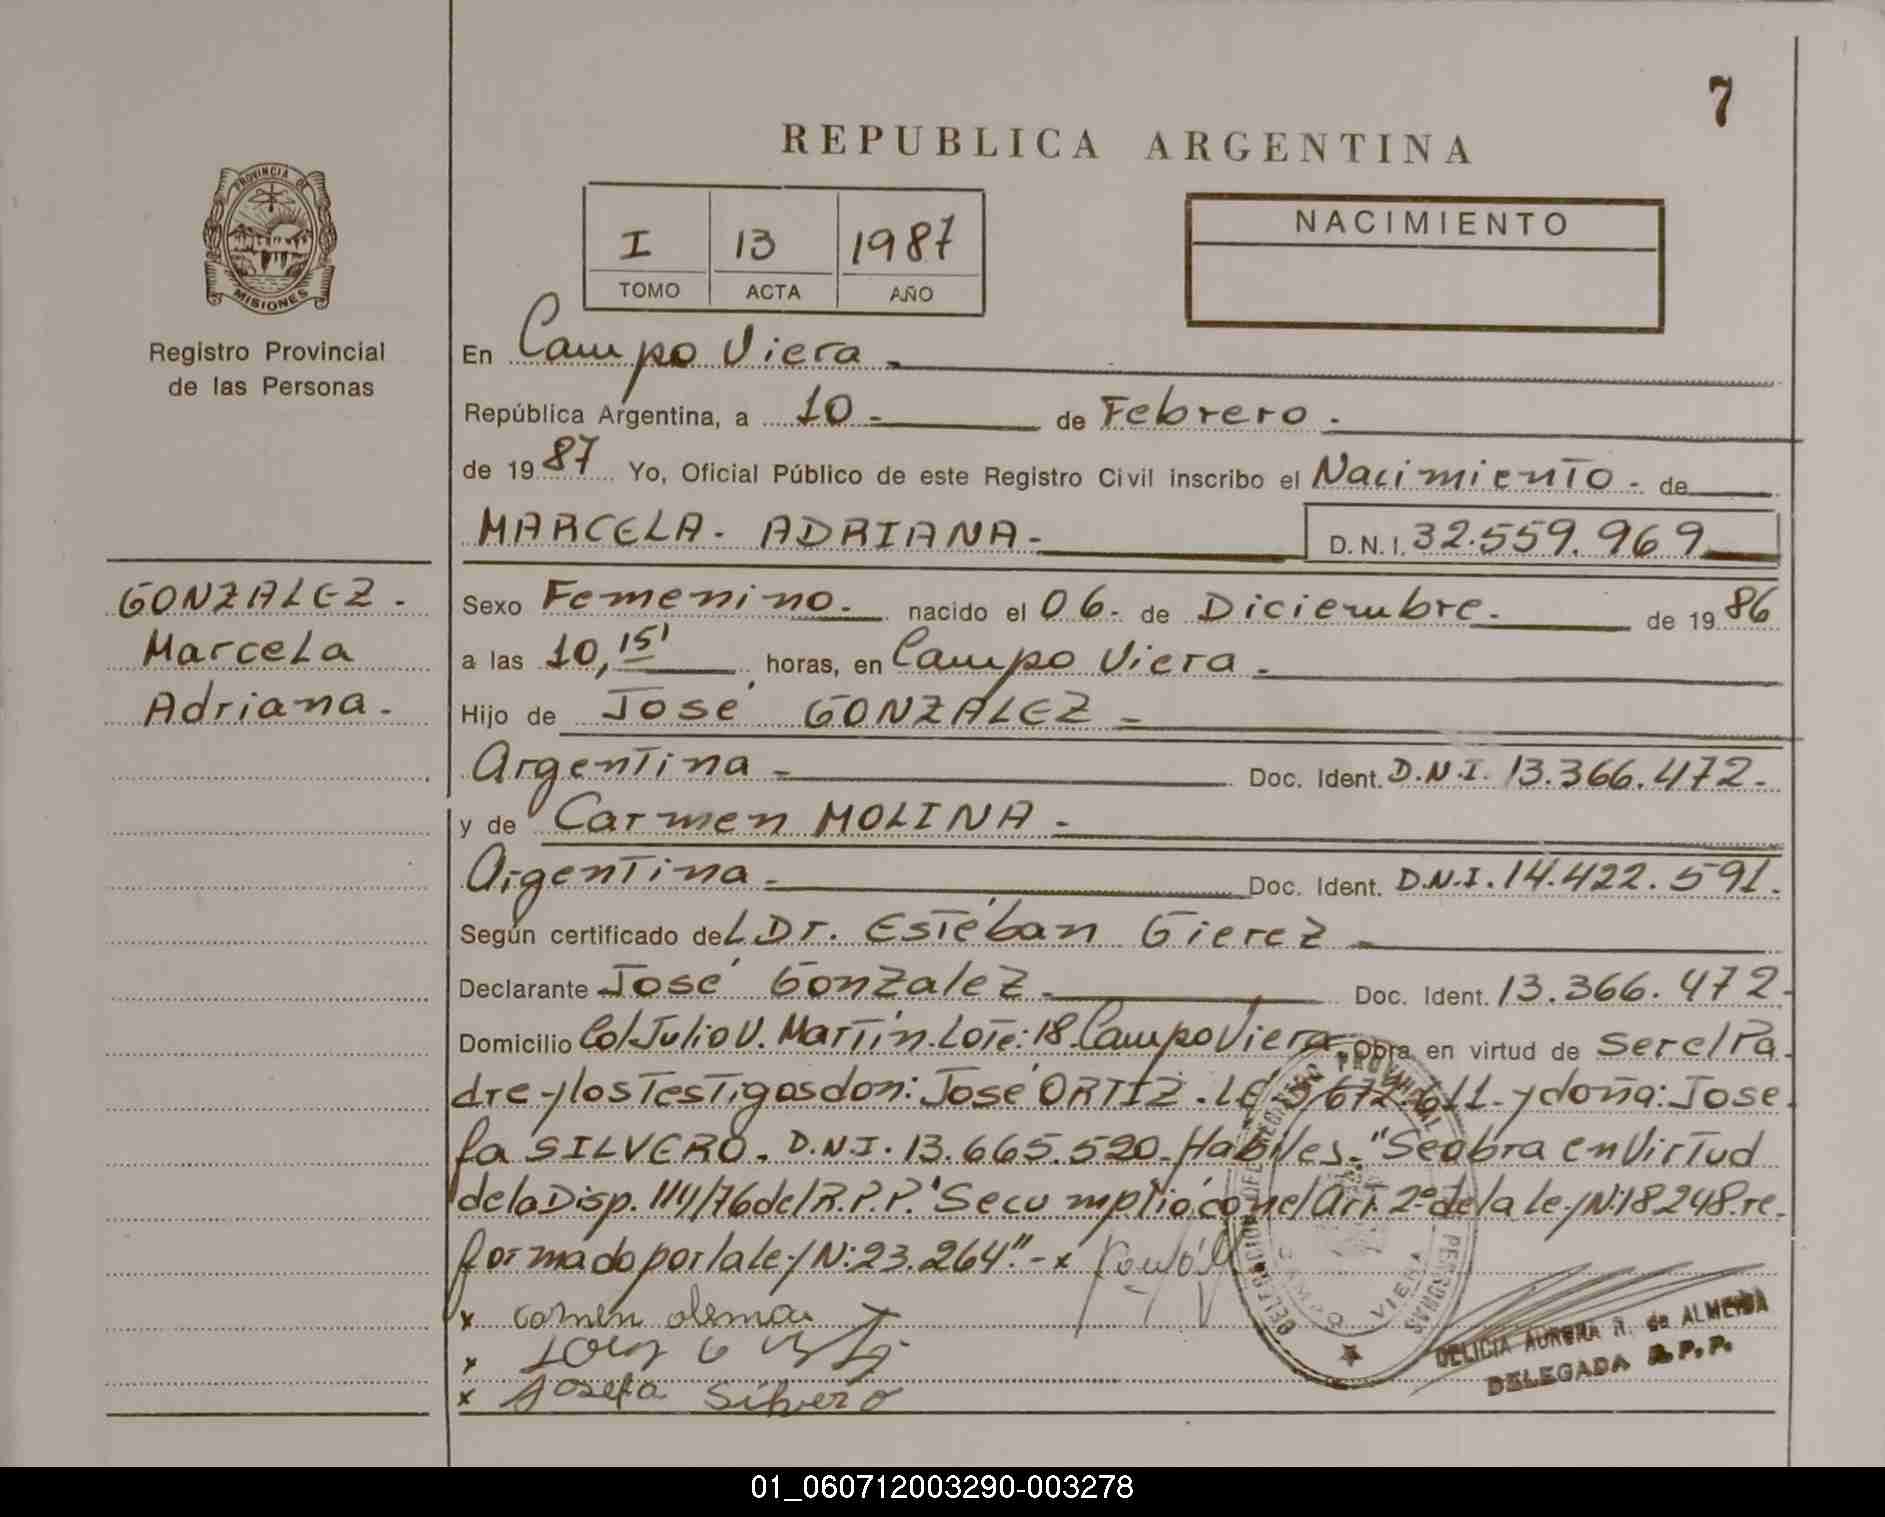 7
REPUBLICA ARGENTINA
PROVINCIA DE
MISIONES
Registro Provincial
de las Personas
I 13 1987
TOMO ACTA AÑO
NACIMIENTO
En Campo Viera -
República Argentina, a 10 - de Febrero -
de 1987 Yo, Oficial Público de este Registro Civil inscribo el Nacimiento - de
MARCELA - ADRIANA - D. N. I. 32.559.969
GONZALEZ -
Marcela
Adriana -
Sexo Femenino - nacido el 06 - de Diciembre - de 1986
a las 10,15' horas, en Campo Viera -
Hijo de José GONZALEZ -
Argentina - Doc. Ident. D.N.I. 13.366.472 -
y de Carmen MOLINA -
Argentina - Doc. Ident. D.N.I. 14.422.591.
Según certificado del Dr. Estéban Gierez -
Declarante José Gonzalez - Doc. Ident. 13.366.472 -
Domicilio Col. Julio U. Martín. Lote: 18. Campo Viera. Obra en virtud de ser el Pa
dre y los Testigos don: José ORTIZ. LE 5.672.611 - y doña: Jose
fa SILVERO. D.N.I. 13.665.520. Habiles. "Se obra en Virtud
de la Disp. 114/76 del R.P.P. "Se cumplió con el Art. 2º de la ley N: 18248. re
formado por la ley N: 23.264". - x
x
x
x Josefa Silvero
DELEGACION DEL REGISTRO PROVINCIAL PERSONAS
CAMPO VIERA
DELICIA AURORA R. de ALMEIDA
DELEGADA R.P.P.
01_060712003290-003278